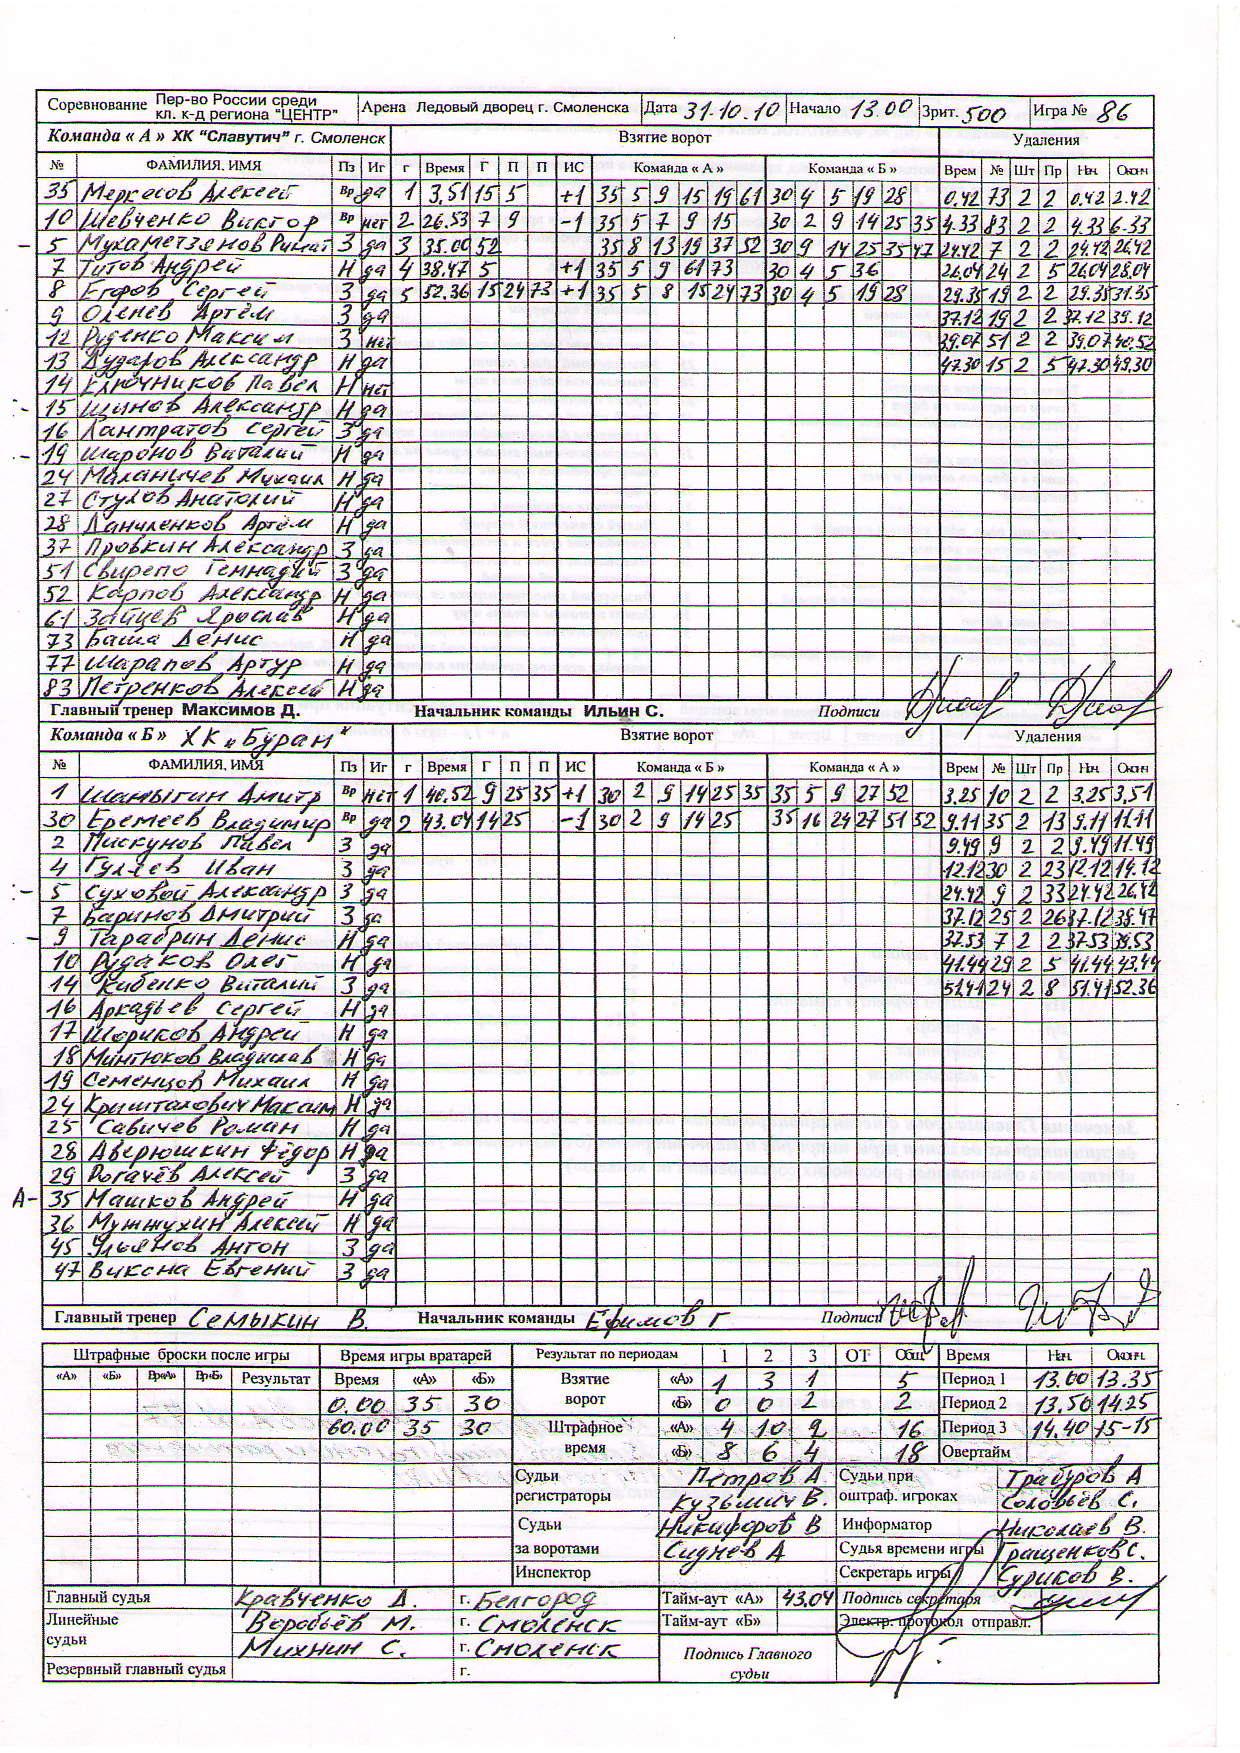 Соревнование Пер-во России среди кл. к-д региона "ЦЕНТР" Арена Ледовый дворец г. Смоленска Дата 31.10.10 Начало 13.00 Зрит. 500 Игра № 86
Команда « А » ХК "Славутич" г. Смоленск Взятие ворот Удаления
№ ФАМИЛИЯ, ИМЯ Пз Иг г Время Г П П ИС Команда « А » Команда « Б » Врем № Шт Пр Нач. Оконч
35 Меркесов Алексей Вр да 1 3,51 15 5 +1 35 5 9 15 19 61 30 4 5 19 28 0.42 73 2 2 0.42 2.42
10 Шевченко Виктор Вр нет 2 26.53 7 9 -1 35 5 7 9 15 30 2 9 14 25 35 4.33 83 2 2 4.33 6.33
- 5 Мухаметзянов Ринат З да 3 35.00 52 35 8 13 19 37 52 30 9 14 25 35 47 24.42 7 2 2 24.42 26.42
7 Титов Андрей Н да 4 38.47 5 +1 35 5 9 61 73 30 4 5 36 26.04 24 2 5 26.04 28.04
8 Егоров Сергей З да 5 52.36 15 24 73 +1 35 5 8 15 24 73 30 4 5 19 28 29.35 19 2 2 29.35 31.35
9 Оленев Артём З да 37.12 19 2 2 37.12 39.12
12 Руденко Максим З нет 39.07 51 2 2 39.07 40.52
13 Дударов Александр Н да 47.30 15 2 5 47.30 49.30
14 Ключников Павел Н нет
15 Шинов Александр Н да
16 Лантратов Сергей З да
19 Шаронов Виталий Н да
24 Маланичев Михаил Н да
27 Стулов Анатолий Н да
28 Даниленков Артём Н да
37 Провкин Александр З да
51 Свирепо Геннадий З да
52 Карпов Александр Н да
61 Зайцев Ярослав Н да
73 Баша Денис Н да
77 Шарапов Артур Н да
83 Петренков Алексей Н да
Главный тренер Максимов Д. Начальник команды Ильин С. Подписи
Команда « Б » ХК „Буран" Взятие ворот Удаления
№ ФАМИЛИЯ, ИМЯ Пз Иг г Время Г П П ИС Команда « Б » Команда « А » Врем № Шт Пр Нач. Оконч
1 Шамыгин Дмитр Вр нет 1 40.52 9 25 35 +1 30 2 9 14 25 35 35 5 9 27 52 3.25 10 2 2 3.25 3,51
30 Еремеев Владимир Вр да 2 43.04 14 25 -1 30 2 9 14 25 35 16 24 27 51 52 9.11 35 2 13 9.11 11.11
2 Пискунов Павел З да 9.49 9 2 2 9.49 11.49
4 Гуляев Иван З да 12.12 30 2 23 12.12 14.12
5 Суховой Александр З да 24.42 9 2 33 24.42 26.42
7 Баринов Дмитрий З да 37.12 25 2 26 37.12 38.47
- 9 Тарабрин Денис Н да 37.53 7 2 2 37.53 39.53
10 Рудаков Олег Н да 41.44 29 2 5 41.44 43.44
14 Кибенко Виталий З да 51.41 24 2 8 51.41 52.36
16 Аркадьев Сергей Н да
17 Шориков Андрей Н да
18 Минтюков Владислав Н да
19 Семенцов Михаил Н да
24 Кришталович Максим Н да
25 Савичев Роман Н да
28 Аверюшкин Фёдор Н да
29 Рогачёв Алексей З да
А- 35 Машков Андрей Н да
36 Мутжухин Алексей Н да
45 Ульянов Антон З да
47 Виксна Евгений З да
Главный тренер Семыкин В. Начальник команды Ефимов Г Подписи
Штрафные броски после игры Время игры вратарей Результат по периодам 1 2 3 ОТ Общ. Время Нач. Оконч.
«А» «Б» Вр«А» Вр«Б» Результат Время «А» «Б» Взятие ворот «А» 1 3 1 5 Период 1 13.00 13.35
0.00 35 30 «Б» 0 0 2 2 Период 2 13.50 14.25
60.00 35 30 Штрафное время «А» 4 10 2 16 Период 3 14.40 15-15
«Б» 8 6 4 18 Овертайм
Судьи регистраторы Петров А. Судьи при оштраф. игроках Трабуров А
Кузьмич В. Соловьёв С.
Судьи за воротами Никифоров В Информатор Николаев В.
Сиднев А Судья времени игры Гращенков С.
Инспектор Секретарь игры Суриков В.
Главный судья Кравченко А. г. Белгород Тайм-аут «А» 43.04 Подпись секретаря
Линейные судьи Воробьёв М. г. Смоленск Тайм-аут «Б» Электр. протокол отправл.
Михнин С. г. Смоленск Подпись Главного судьи
Резервный главный судья г.